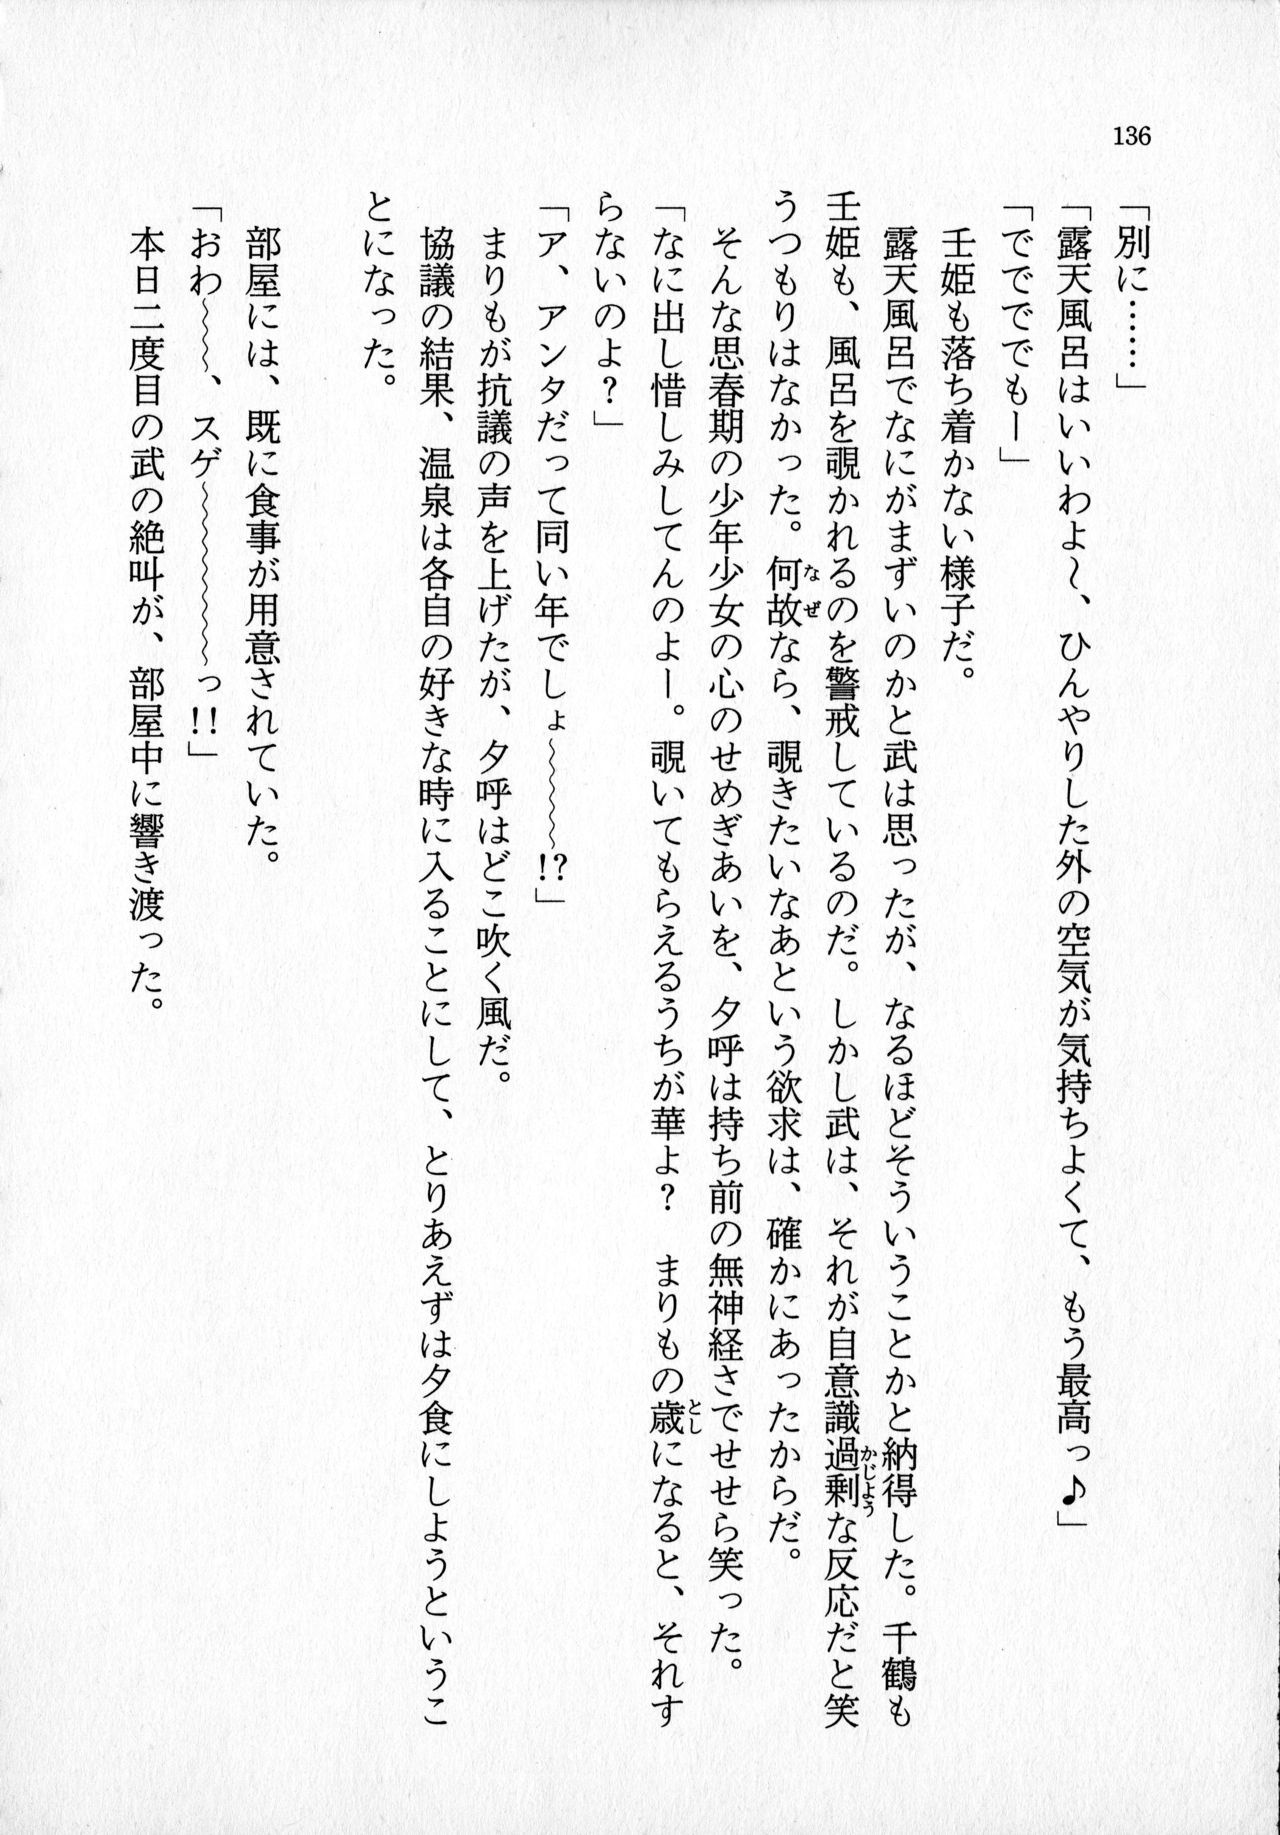 136
「別に……」
「露天風呂はいいわよ～、ひんやりした外の空気が気持ちよくて、もう最高っ♪」
「ででででもー」
　壬姫も落ち着かない様子だ。
　露天風呂でなにがまずいのかと武は思ったが、なるほどそういうことかと納得した。千鶴も
壬姫も、風呂を覗かれるのを警戒しているのだ。しかし武は、それが自意識過剰な反応だと笑
うつもりはなかった。何故なら、覗きたいなあという欲求は、確かにあったからだ。
　そんな思春期の少年少女の心のせめぎあいを、夕呼は持ち前の無神経さでせせら笑った。
「なに出し惜しみしてんのよー。覗いてもらえるうちが華よ？　まりもの歳になると、それす
らないのよ？」
「ア、アンタだって同い年でしょ～～～～～!?」
　まりもが抗議の声を上げたが、夕呼はどこ吹く風だ。
　協議の結果、温泉は各自の好きな時に入ることにして、とりあえずは夕食にしようというこ
とになった。
　部屋には、既に食事が用意されていた。
「おわ～～～、スゲ～～～～～～～っ!!」
　本日二度目の武の絶叫が、部屋中に響き渡った。